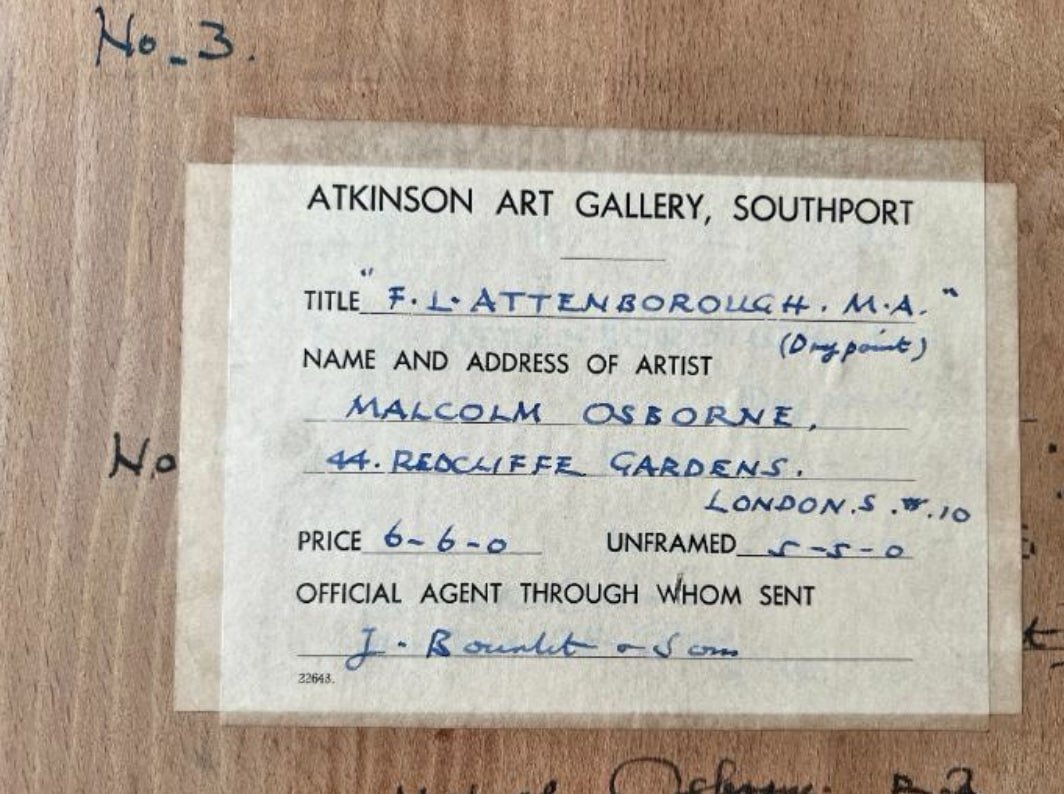 No. 3.
ATKINSON ART GALLERY, SOUTHPORT
TITLE "F. L. ATTENBOROUGH. M.A."
(Drypoint)
NAME AND ADDRESS OF ARTIST
MALCOLM OSBORNE,
No
44. REDCLIFFE GARDENS.
LONDON. S.W.10
PRICE 6-6-0 UNFRAMED 5-5-0
OFFICIAL AGENT THROUGH WHOM SENT
J. Bourlet & Sons
22643.